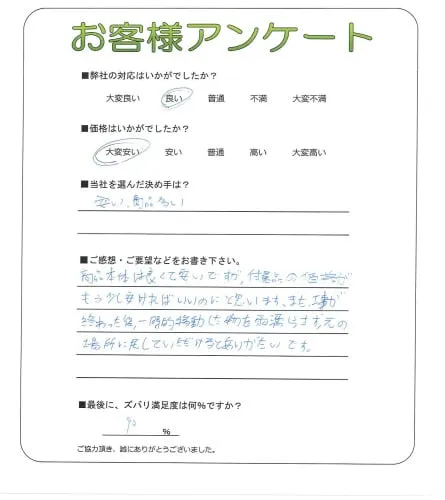 お客様アンケート
■弊社の対応はいかがでしたか?
大変良い 良い 普通 不満 大変不満
■価格はいかがでしたか?
大変安い 安い 普通 高い 大変高い
■当社を選んだ決め手は?
安い、商品多い
■ご感想・ご要望などをお書き下さい。
商品本体は良くて安いですが、付属品の価格が
もう少し安ければいいのにと思います。また、工事が
終わった後、一時的移動した物を雨濡らさず、元の
場所に戻していただけるとありがたいです。
■最後に、ズバリ満足度は何%ですか?
90 %
ご協力頂き、誠にありがとうございました。